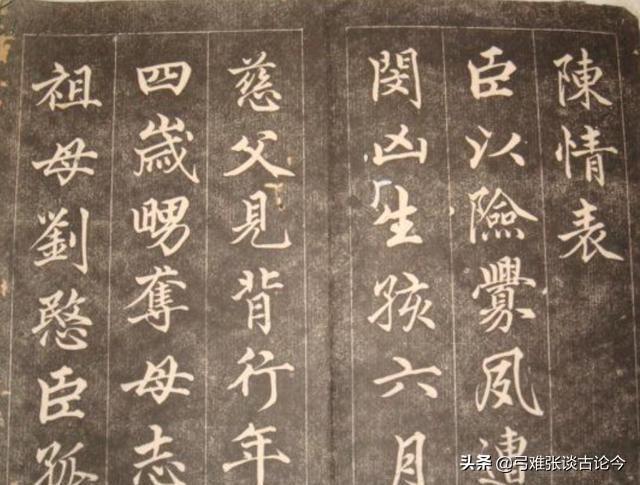 陳情表
臣以險釁夙遭
閔凶生孩六月
慈父見背行年
四嵗舅奪母志
祖母劉愍臣孤
头条 @弓难张谈古论今